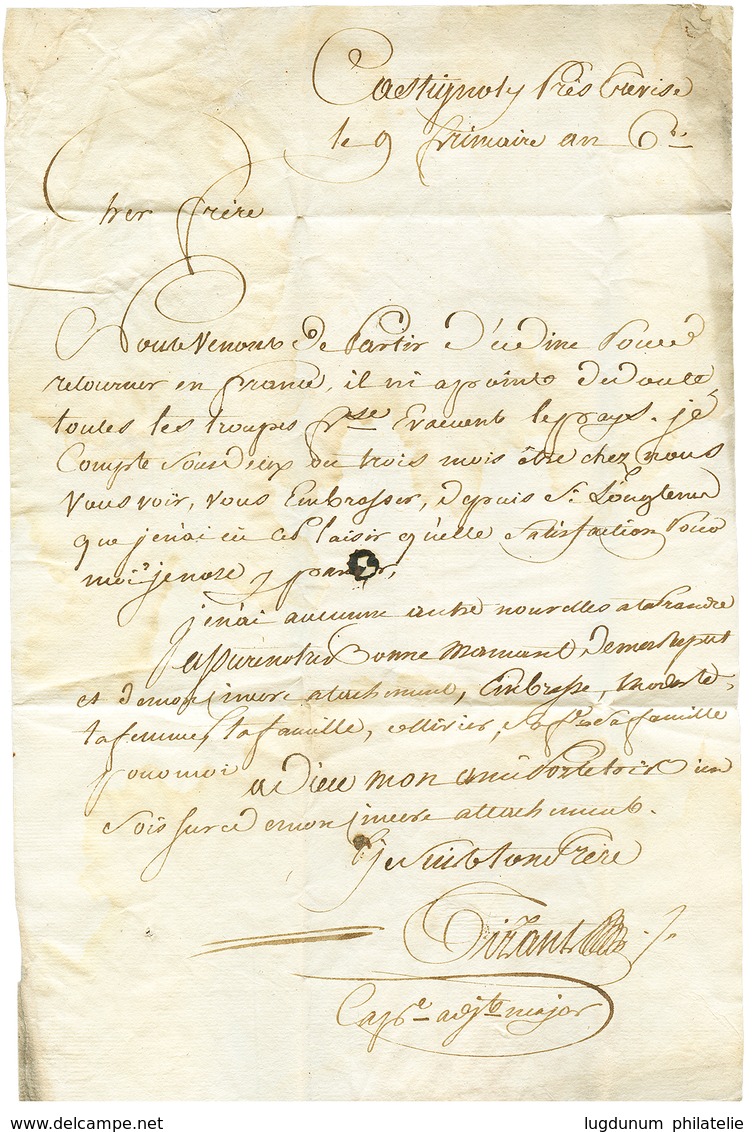 Castignoly Près Trevise
le 9 frimaire an 6e
Cher frère
Nous Venons de Partir d'udine Pour
retourner en france, il ni a points du doute
toutes les troupes fse Evacuent le pays. je
Compte Sous deux ou trois mois être chez nous
Vous voir, vous Embrasser, depuis Si Longtems
que je nai eü ce Plaisir qu'elle Satisfaction Pour
moi je nose y panser,
j'enai aucune autre nouvelles a taprandre
assure notre Bonne Mamant, de mon Repect
et de mon sincere attachement, Embrasse, modeste,
ta femme, ta famille, ollivier, sa fe sa famille
pour moi adieu mon ami Porte toit bien
Sois sur de mon sincere attachement.
je Suis ton Frère
Tirant
Capne adjt major
delcampe.net
lugdunum philatelie